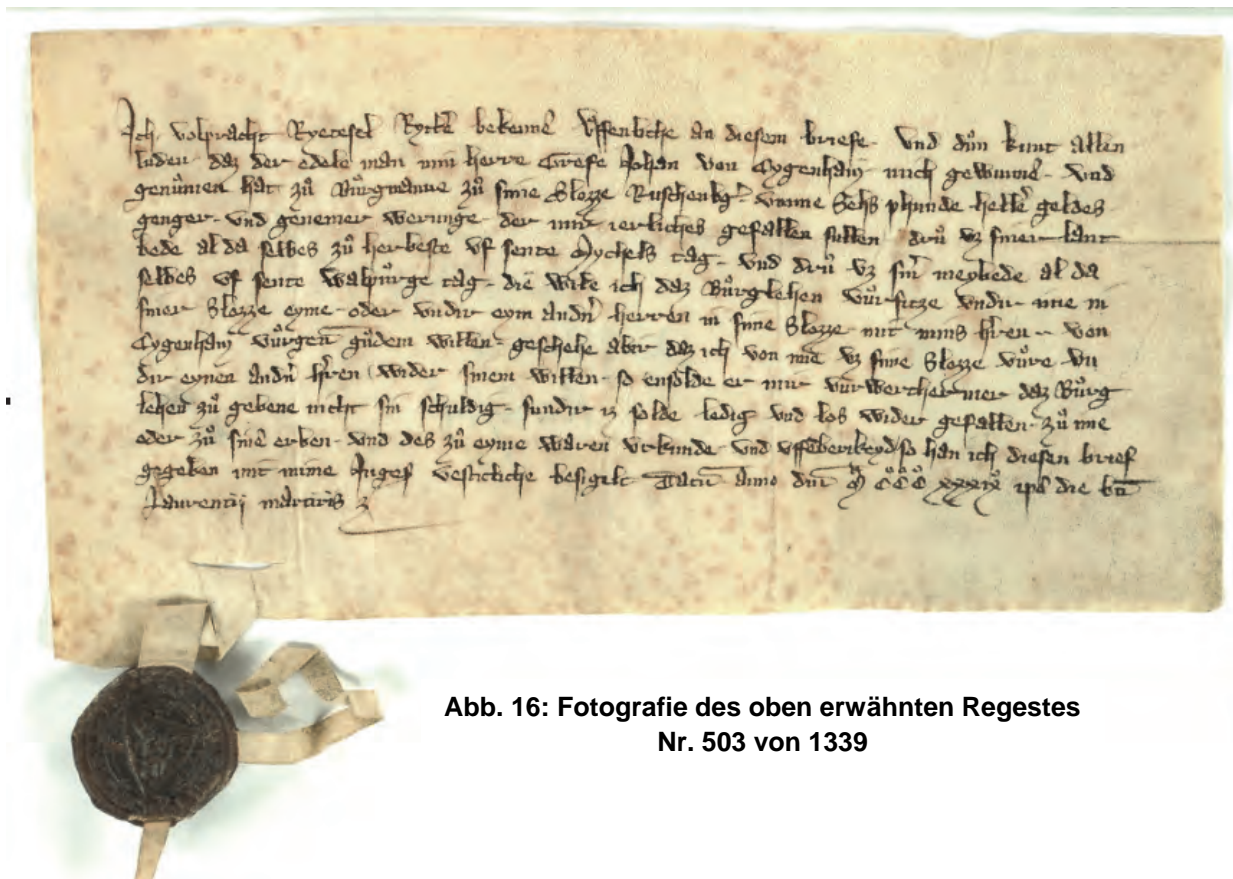 Ich volpracht Ryetesel Rytt̄e bekenne uffenliche an diesem briefe. Und důn kunt allen
luden daz der edele man min herre Grefe Johan von Cygenhain mich gewunne. Und
genůmen hat zů Bůrgmanne zů sime Slozze Ruschenbḡ. umme Sehs phunde hell̄e geldes
genger. und genemer werunge. der mir ierliches gefallen sullen drů uz siner lant
bede al da selbes zů herbeste uf sente Mychels tag. und drů uz sin̄ meybede al da
selbes uf sente walpůrge tag. die wile ich daz Bůrglehen vůr sitze undir ime in
siner Slozze eyme. oder undir eym andn̄ herren in sime Slozze mit mins hr̄en von
Cygenhain gůdem willen. geschehe aber daz ich von ime uz sime Slozze vůre un
dir eynen andn̄ hr̄en wider sinem willen. so ensolde er mir vůrwerther mer daz Bůrg
lehen zů gebene nicht sin schuldig. sundir iz solde ledig und los wider gefallen. zů ime
oder zů sinē erben. und des zů eyme waren urkunde. und so han ich diesen brief
gegeben mit mime Ingeſ vestecliche besigelt. Datū anno dn̄i M CCC XXXIX ipō die bt̄i
Laurentii martiris
Abb. 16: Fotografie des oben erwähnten Regestes
Nr. 503 von 1339